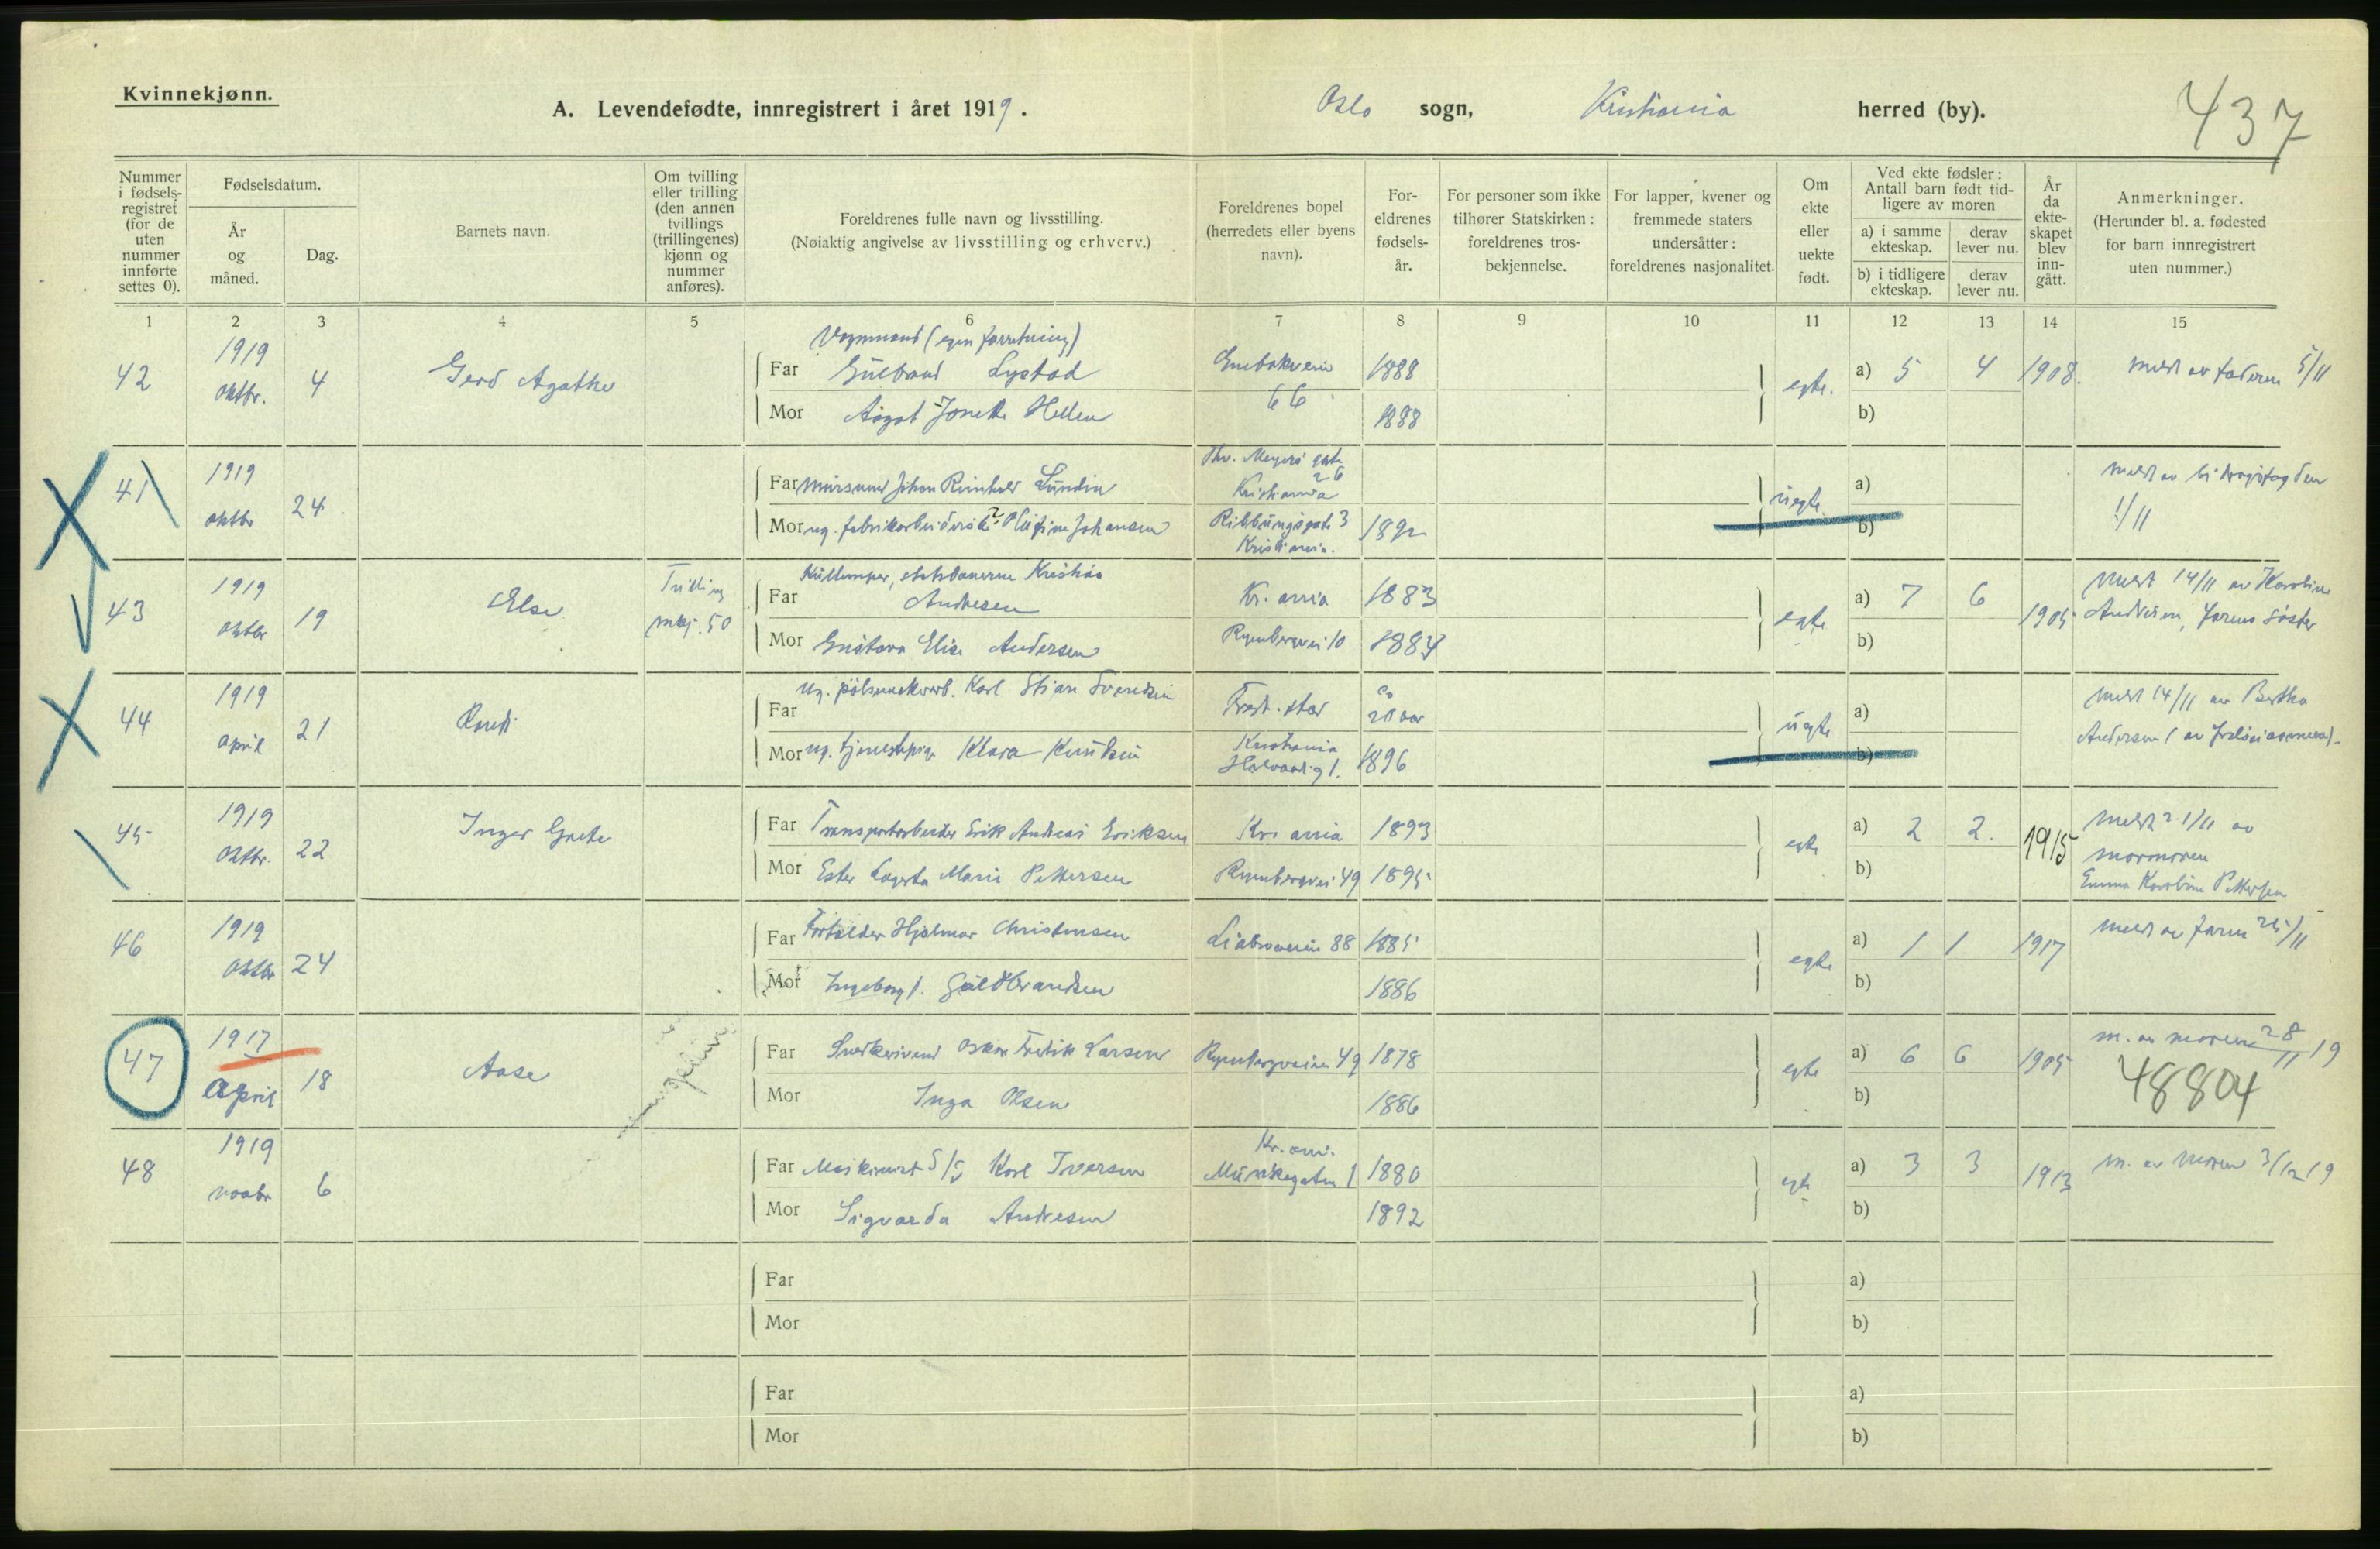 Kvinnekjønn.
A. Levendefødte, innregistrert i året 1919.
Oslo sogn, Kristiania herred (by).
437
Nummer i fødsels-registret (for de uten nummer innførte settes 0).
Fødselsdatum.
År og måned.
Dag.
Barnets navn.
Om tvilling eller trilling (den annen tvillings (trillingenes) kjønn og nummer anføres).
Foreldrenes fulle navn og livsstilling.
(Nøiaktig angivelse av livsstilling og erhverv.)
Foreldrenes bopel (herredets eller byens navn).
For-eldrenes fødsels-år.
For personer som ikke tilhører Statskirken: foreldrenes tros-bekjennelse.
For lapper, kvener og fremmede staters undersåtter: foreldrenes nasjonalitet.
Om ekte eller uekte født.
Ved ekte fødsler: Antall barn født tid-ligere av moren
a) i samme ekteskap.
derav lever nu.
b) i tidligere ekteskap.
derav lever nu.
År da ekte-skapet blev inn-gått.
Anmerkninger.
(Herunder bl. a. fødested for barn innregistrert uten nummer.)
1 2 3 4 5 6 7 8 9 10 11 12 13 14 15
42 1919 oktbr. 4 Gerd Agathe
Vognmand (egen forretning)
Far Gulbrand Lystad Enebakvein 1888
66
Mor Aagot Jonette Hellen 1888
egte. a) 5 4 1908. meldt av faderen 5/11
b)
41 1919 oktbr 24
Thv. Meyers gate 26
Far Murer Johan Reinhold Lundin Kristiania
Mor ug. fabrikarbeiderske Olufine Johansen Ribbungsgate 3 Kristiania. 1892
uegte a)
b)
meldt av bidragsfogden 1/11
43 1919 oktbr 19 Else Trilling mkj. 50
Kullemper, statsbanerne Kristian
Far Andresen Kr.ania 1883
Mor Gustava Elise Andersen Ryenbergvei 10 1884
egte a) 7 6 1905
b)
Meldt 14/11 av Karoline Andresen, farens søster
44 1919 april 21 Randi
Far ug. pølsemakerarb. Karl Stian Svendsen Fredr.stad ca 20 aar
Mor ug. tjenestepige Klara Knudsen Kristiania Halvardsg 1. 1896
uegte a)
b)
Meldt 14/11 av Bertha Andersen
45 1919 oktbr. 22 Inger Grete
Far Transportarbeider Erik Andreas Eriksen Kr.ania 1893
Mor Ester Lagerta Marie Pettersen Ryenbergvei 49 1895
egte a) 2 2. 1915
b)
Meldt 21/11 av mormoren
Emma Karoline Pettersen
46 1919 oktbr 24
Far Hjalmar Christensen Liabroveien 88 1885
Mor Ingeborg J. Guldbrandsen 1886
egte a) 1 1 1917
b)
meldt av faren 25/11
47 1917 april 18 Aase
Far Oskar Fredrik Larsen Ryenbergveien 49 1878
Mor Inga Olsen 1886
egte a) 6 6 1905
b)
m. av moren 28/11 19
48804
48 1919 novbr 6
Kr.ania.
Far Maskinist Karl Iversen Munkegaten 1 1880
Mor Sigvarda Andresen 1892
egte a) 3 3 1913
b)
m. av moren 3/12 19
Far a)
Mor b)
Far a)
Mor b)